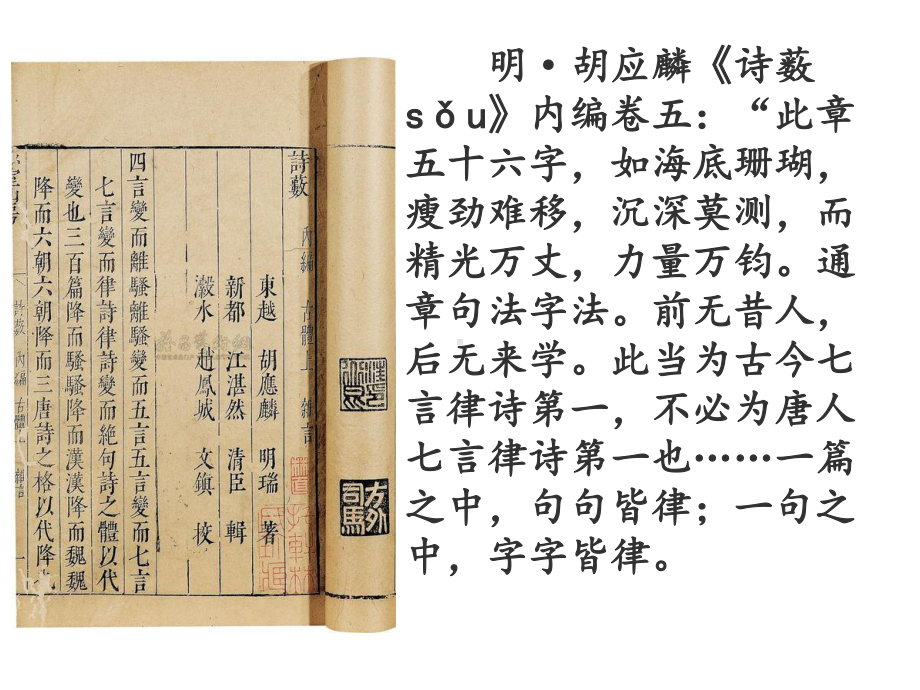 明·胡应麟《诗薮
sǒu》内编卷五：“此章
五十六字，如海底珊瑚，
瘦劲难移，沉深莫测，而
精光万丈，力量万钧。通
章句法字法。前无昔人，
后无来学。此当为古今七
言律诗第一，不必为唐人
七言律诗第一也……一篇
之中，句句皆律；一句之
中，字字皆律。
詩藪 內編 古體上 雜言
東越 胡應麟 明瑞 著
新都 江湛然 清臣 輯
瀫水 趙鳳城 文鎮 校
四言變而離騷離騷變而五言五言變而七言
七言變而律詩律詩變而絕句詩之體以代
變也三百篇降而騷騷降而漢漢降而魏魏
降而六朝六朝降而三唐詩之格以代降也
詩藪 內編 古體上 雜言 一
方外
司馬